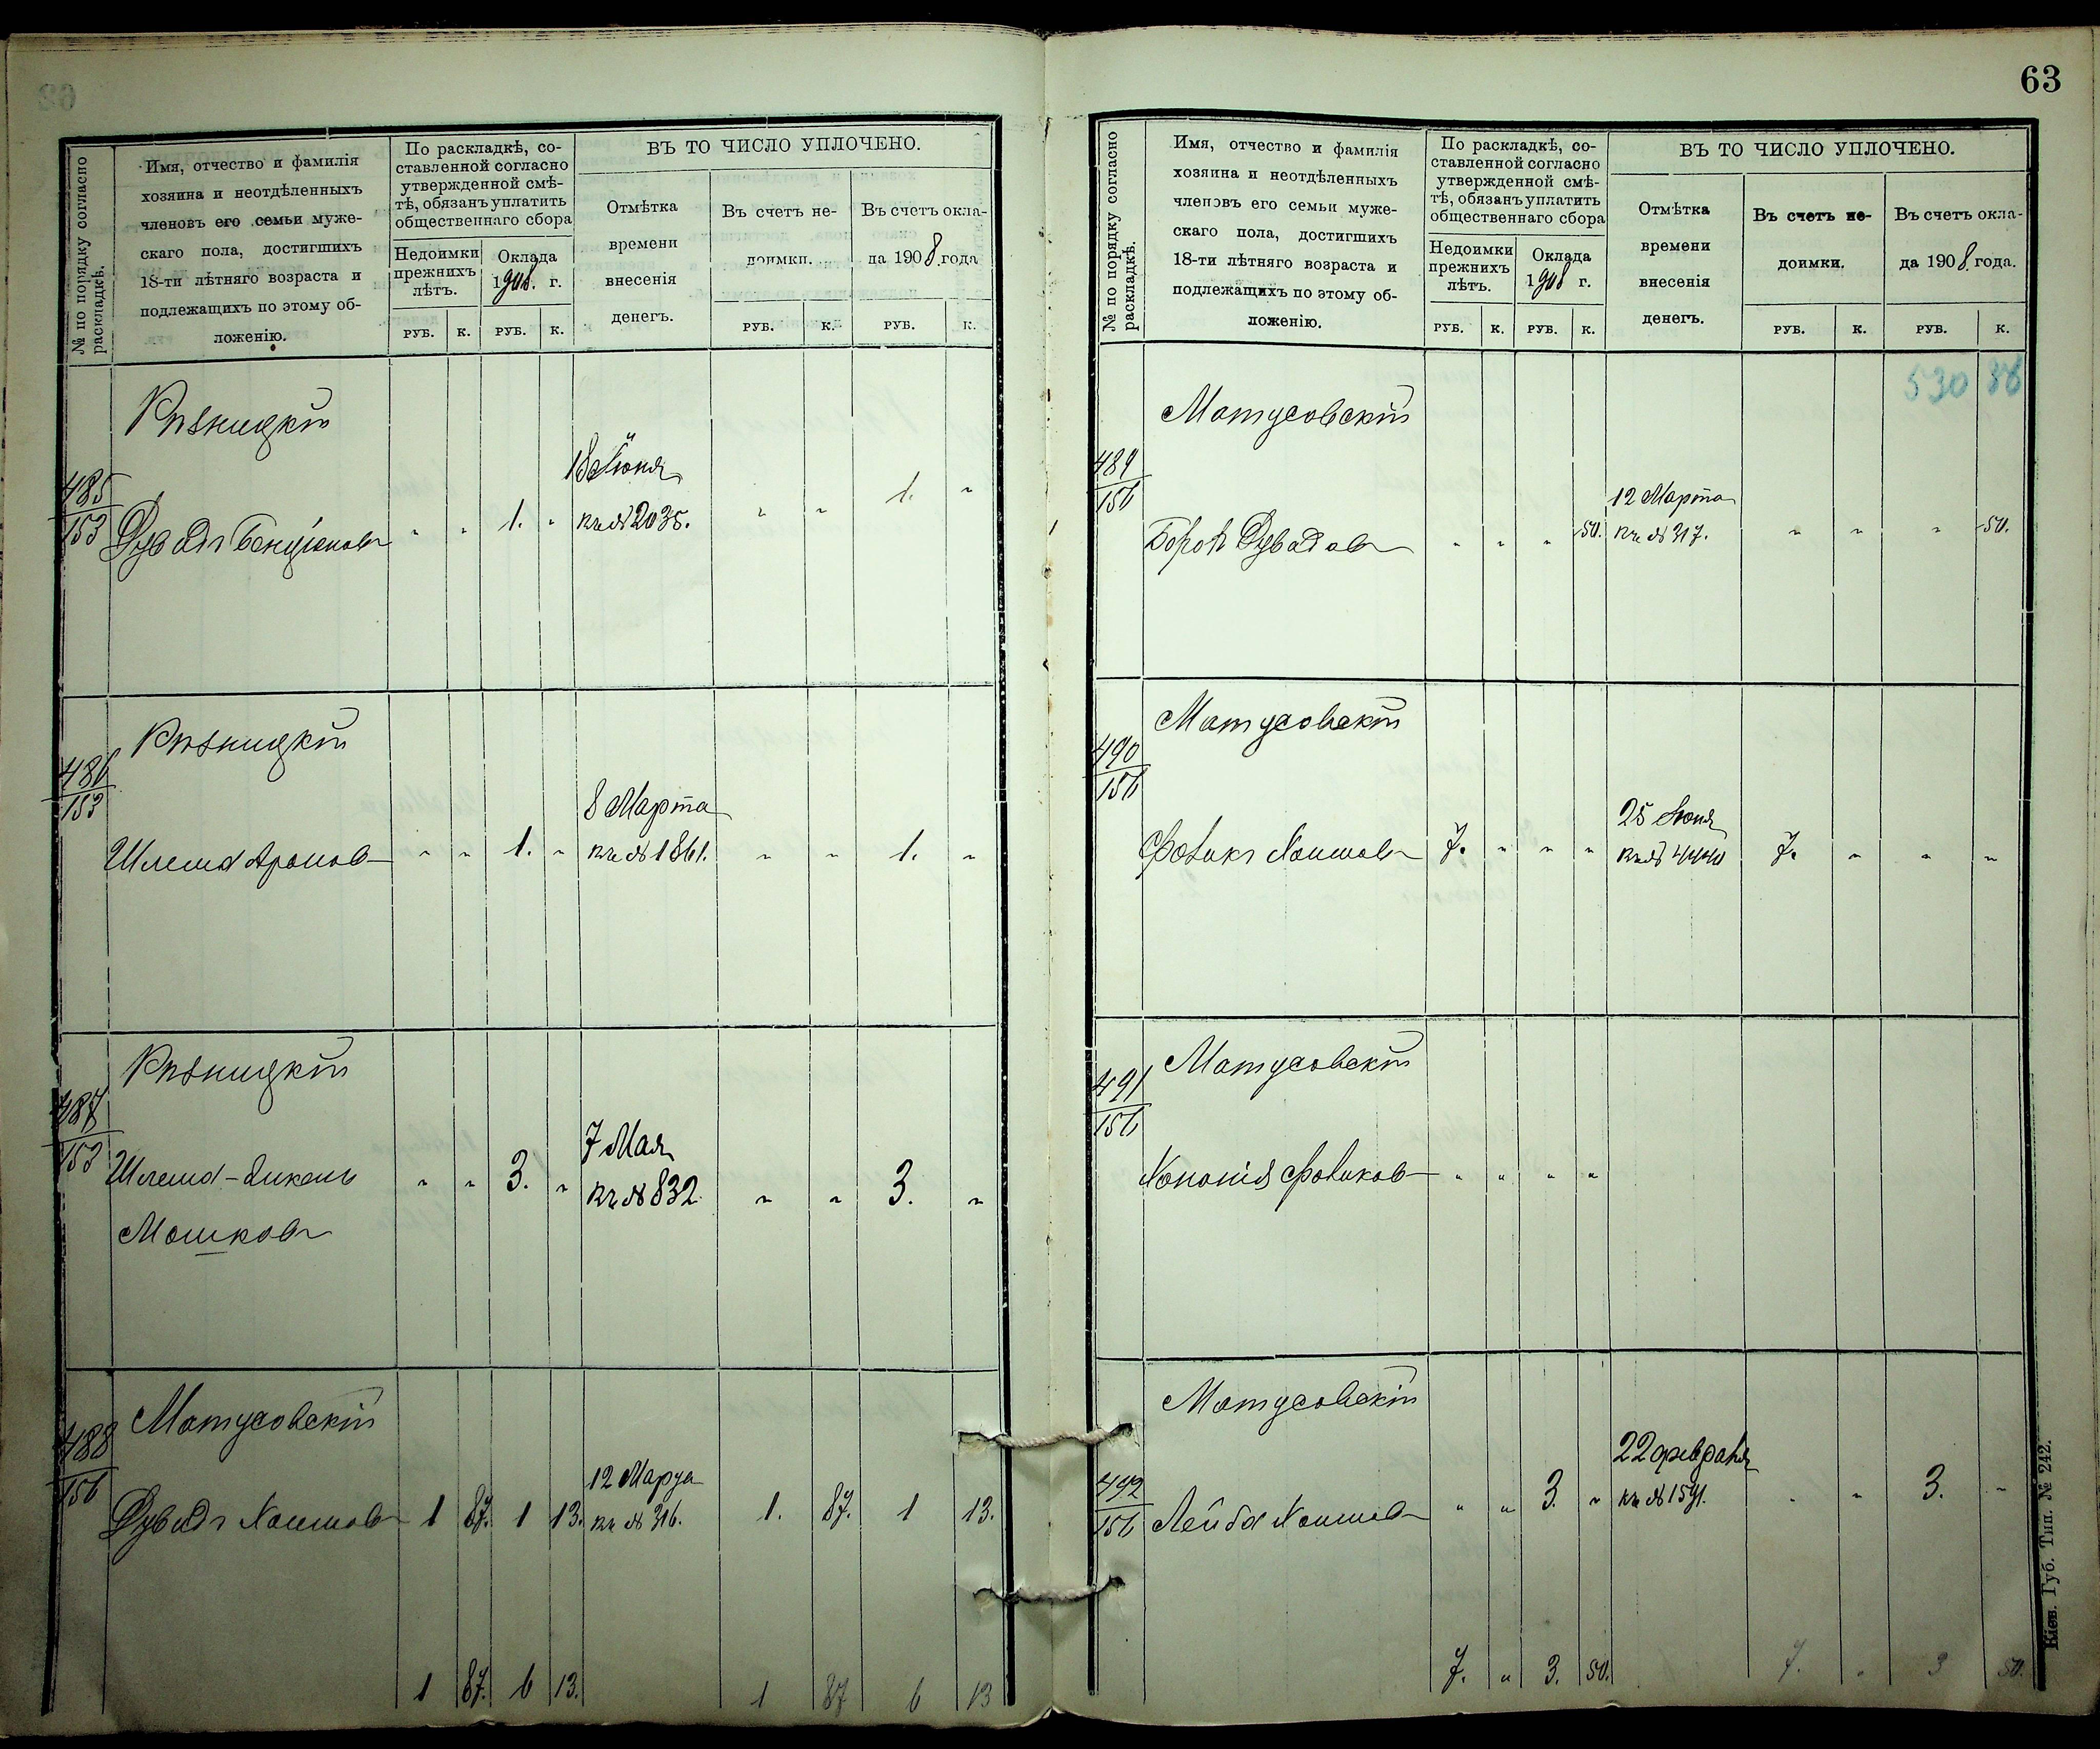 № по порядку согласно раскладкѣ.
Имя, отчество и фамилія
хозяина и неотдѣленныхъ
членовъ его семьи муже-
скаго пола, достигшихъ
18-ти лѣтняго возраста и
подлежащихъ по этому об-
ложенію.
По раскладкѣ, со-
ставленной согласно
утвержденной смѣ-
тѣ, обязанъ уплатить
общественнаго сбора
Недоимки
прежнихъ
лѣтъ.
Оклада
1908. г.
ВЪ ТО ЧИСЛО УПЛОЧЕНО.
Отмѣтка
времени
внесенія
денегъ.
Въ счетъ не-
доимки.
Въ счетъ окла-
да 1908 года
РУБ. К. РУБ. К. РУБ. К. РУБ. К.
Рѣзницкій
485
153
Дувидъ
" " 1. "
18 Іюня
кв № 2035.
" " 1. "
Рѣзницкій
486
153
Шлема Ароновъ
" " 1. "
8 Марта
кв № 1861.
" " 1. "
Рѣзницкій
487
153
Шлема-
Мошковъ
" " 3. "
7 Мая
кв № 832
" " 3. "
Матусовскій
488
156
Дувидъ Хаимовъ
1 87. 1 13.
12 Марта
кв № 316.
1. 87. 1 13.
1 87. 6 13.
1 87 6 13
63
№ по порядку согласно раскладкѣ.
Имя, отчество и фамилія
хозяина и неотдѣленныхъ
членовъ его семьи муже-
скаго пола, достигшихъ
18-ти лѣтняго возраста и
подлежащихъ по этому об-
ложенію.
По раскладкѣ, со-
ставленной согласно
утвержденной смѣ-
тѣ, обязанъ уплатить
общественнаго сбора
Недоимки
прежнихъ
лѣтъ.
Оклада
1908 г.
ВЪ ТО ЧИСЛО УПЛОЧЕНО.
Отмѣтка
времени
внесенія
денегъ.
Въ счетъ не-
доимки.
Въ счетъ окла-
да 1908 года.
РУБ. К. РУБ. К. РУБ. К. РУБ. К.
530 86
Матусовскій
489
156
Дувидовъ
" " " 50.
12 Марта
кв № 317.
" " " 50.
Матусовскій
490
156
Фоликъ Хаимовъ
7. " " "
25 Іюня
кв № 4440
7. " " "
Матусовскій
491
156
Хононія Фоликовъ
" " " "
Матусовскій
492
156
Лейба Хаимовъ
" " 3. "
22 февраля
кв № 1591.
" " 3. "
7. " 3. 50.
7. " 3 50.
Кіев. Губ. Тип. № 242.